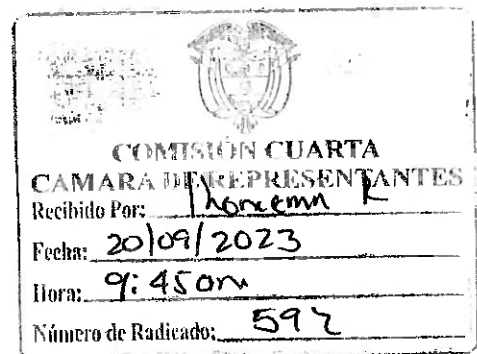 COMISIÓN CUARTA
CAMARA DE REPRESENTANTES
Recibido Por: R
Fecha: 20/09/2023
Hora: 9:45am
Número de Radicado: 592